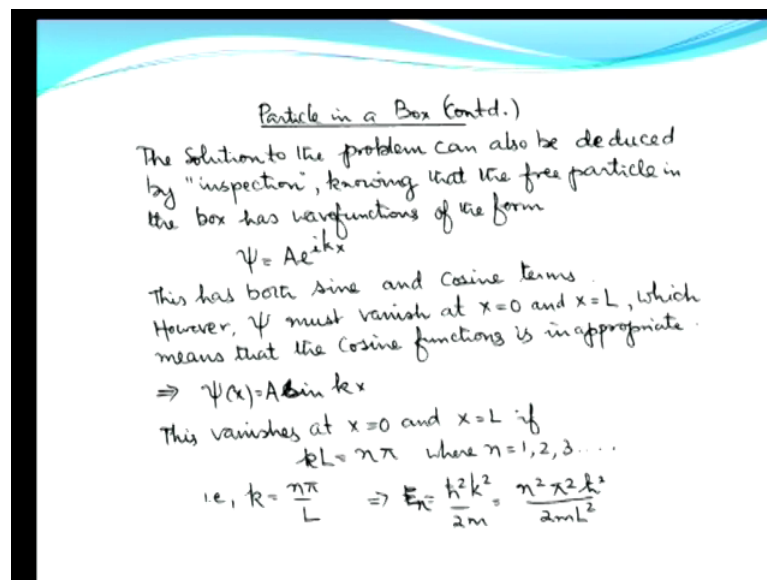 Particle in a Box (Contd.)
The solution to the problem can also be deduced
by "inspection", knowing that the free particle in
the box has wavefunctions of the form
Ψ = Ae^{ikx}
This has both sine and cosine terms.
However, Ψ must vanish at x=0 and x=L, which
means that the cosine functions is inappropriate.
⇒ Ψ(x)=A sin kx
This vanishes at x=0 and x=L if
kL = nπ where n=1,2,3....
i.e, k = nπ/L ⇒ Eₙ = ℏ²k²/2m = n²π²ℏ²/2mL²